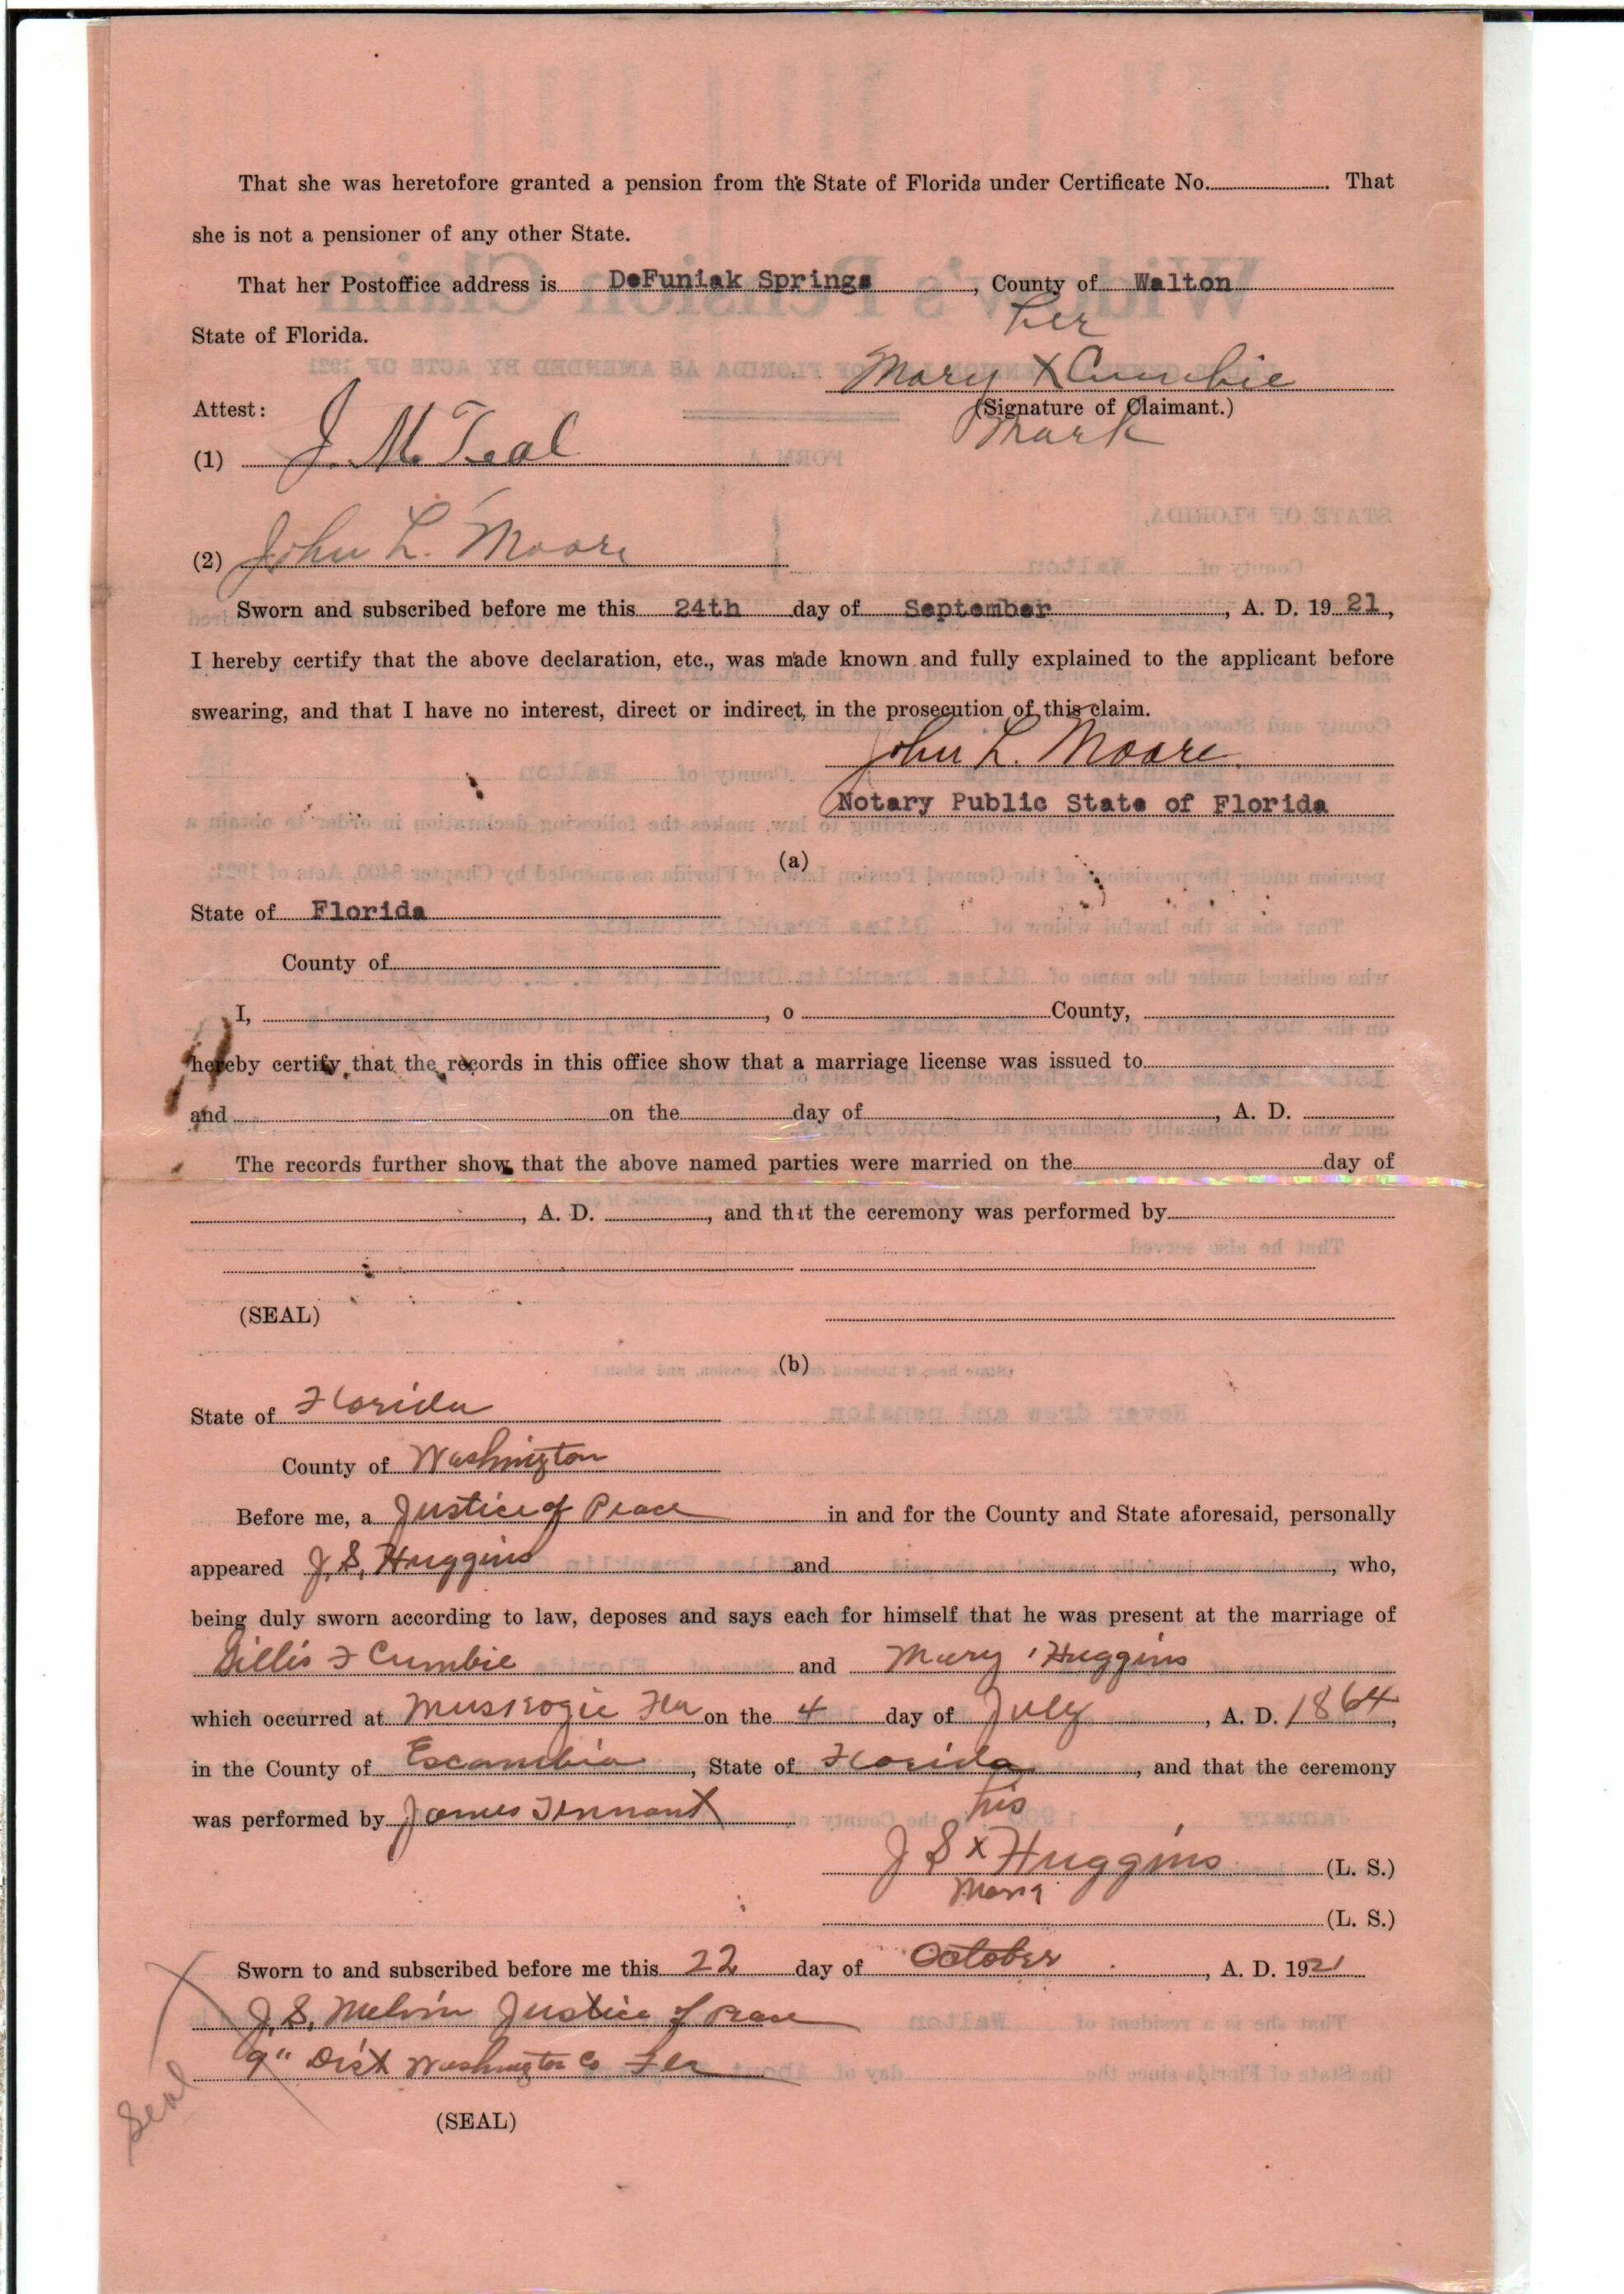 That she was heretofore granted a pension from the State of Florida under Certificate No. ........ That
she is not a pensioner of any other State.
That her Postoffice address is DeFuniak Springs, County of Walton
her
State of Florida.
Mary X Cumbie
Attest:
(Signature of Claimant.)
mark
(1) J. M. Teal
(2) John L. Moore
Sworn and subscribed before me this 24th day of September, A. D. 1921,
I hereby certify that the above declaration, etc., was made known and fully explained to the applicant before
swearing, and that I have no interest, direct or indirect, in the prosecution of this claim.
John L. Moore
Notary Public State of Florida
(a)
State of Florida
County of
I, ........, o ........ County, ........
hereby certify that the records in this office show that a marriage license was issued to
and ........ on the ........ day of ........, A. D. ........
The records further show that the above named parties were married on the ........ day of
........, A. D. ........, and that the ceremony was performed by
(SEAL)
(b)
State of Florida
County of Washington
Before me, a Justice of Peace in and for the County and State aforesaid, personally
appeared J. S. Huggins and ........, who,
being duly sworn according to law, deposes and says each for himself that he was present at the marriage of
Gillis F Cumbie and Mary Huggins
which occurred at Muskogie Fla on the 4 day of July, A. D. 1864,
in the County of Escambia, State of Florida, and that the ceremony
was performed by James Tennant
his
J S x Huggins (L. S.)
Mark
(L. S.)
Sworn to and subscribed before me this 22 day of October, A. D. 1921
J. S. Melvin Justice of Peace
9" Dist Washington Co Fla
Seal
(SEAL)